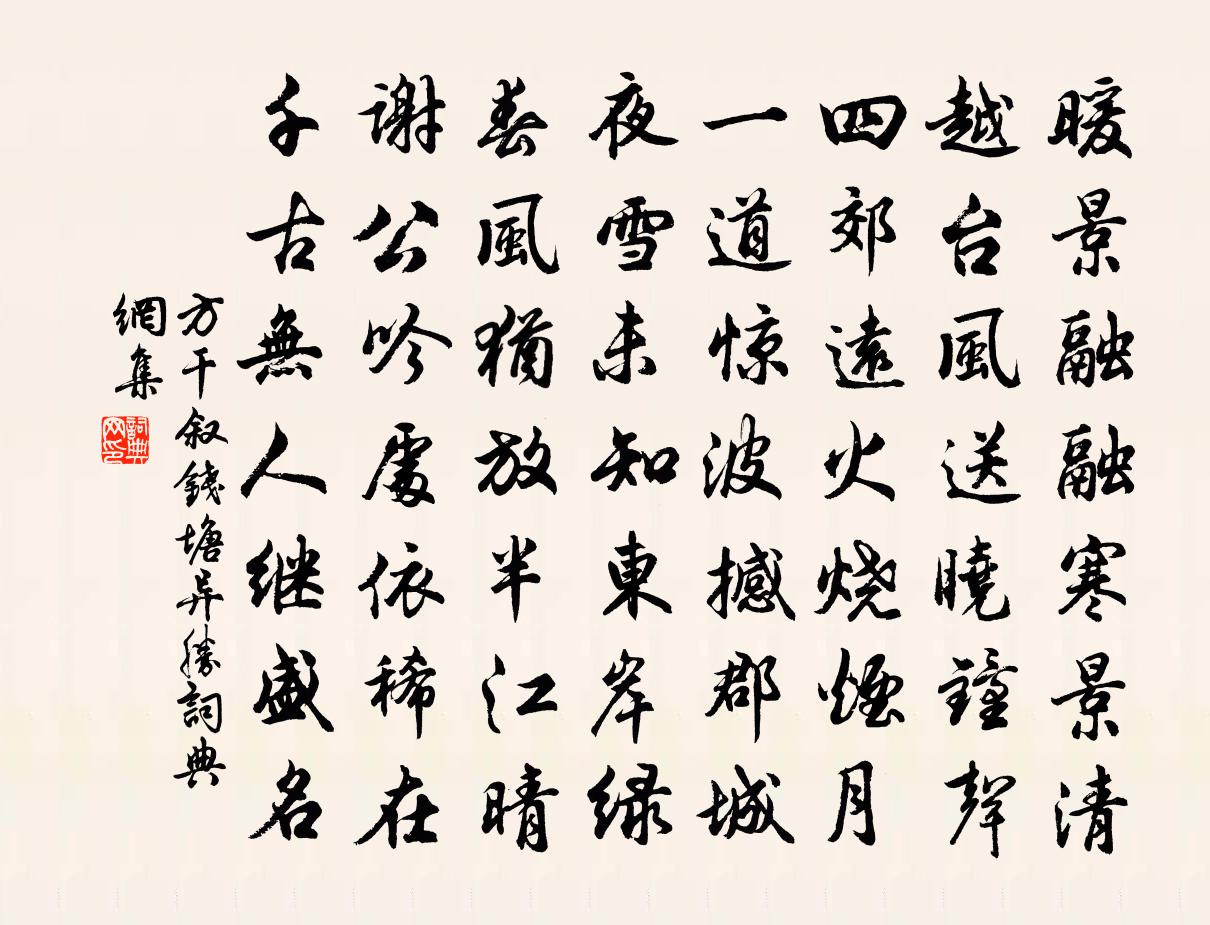 暖景融融寒景清
越台風送曉鐘聲
四郊遠火燒煙月
一道惊波撼郡城
夜雪未知東岸绿
春風猶放半江晴
謝公吟處依稀在
千古無人继盛名
方干叙錢塘异勝詞典
網集
詞典
网印